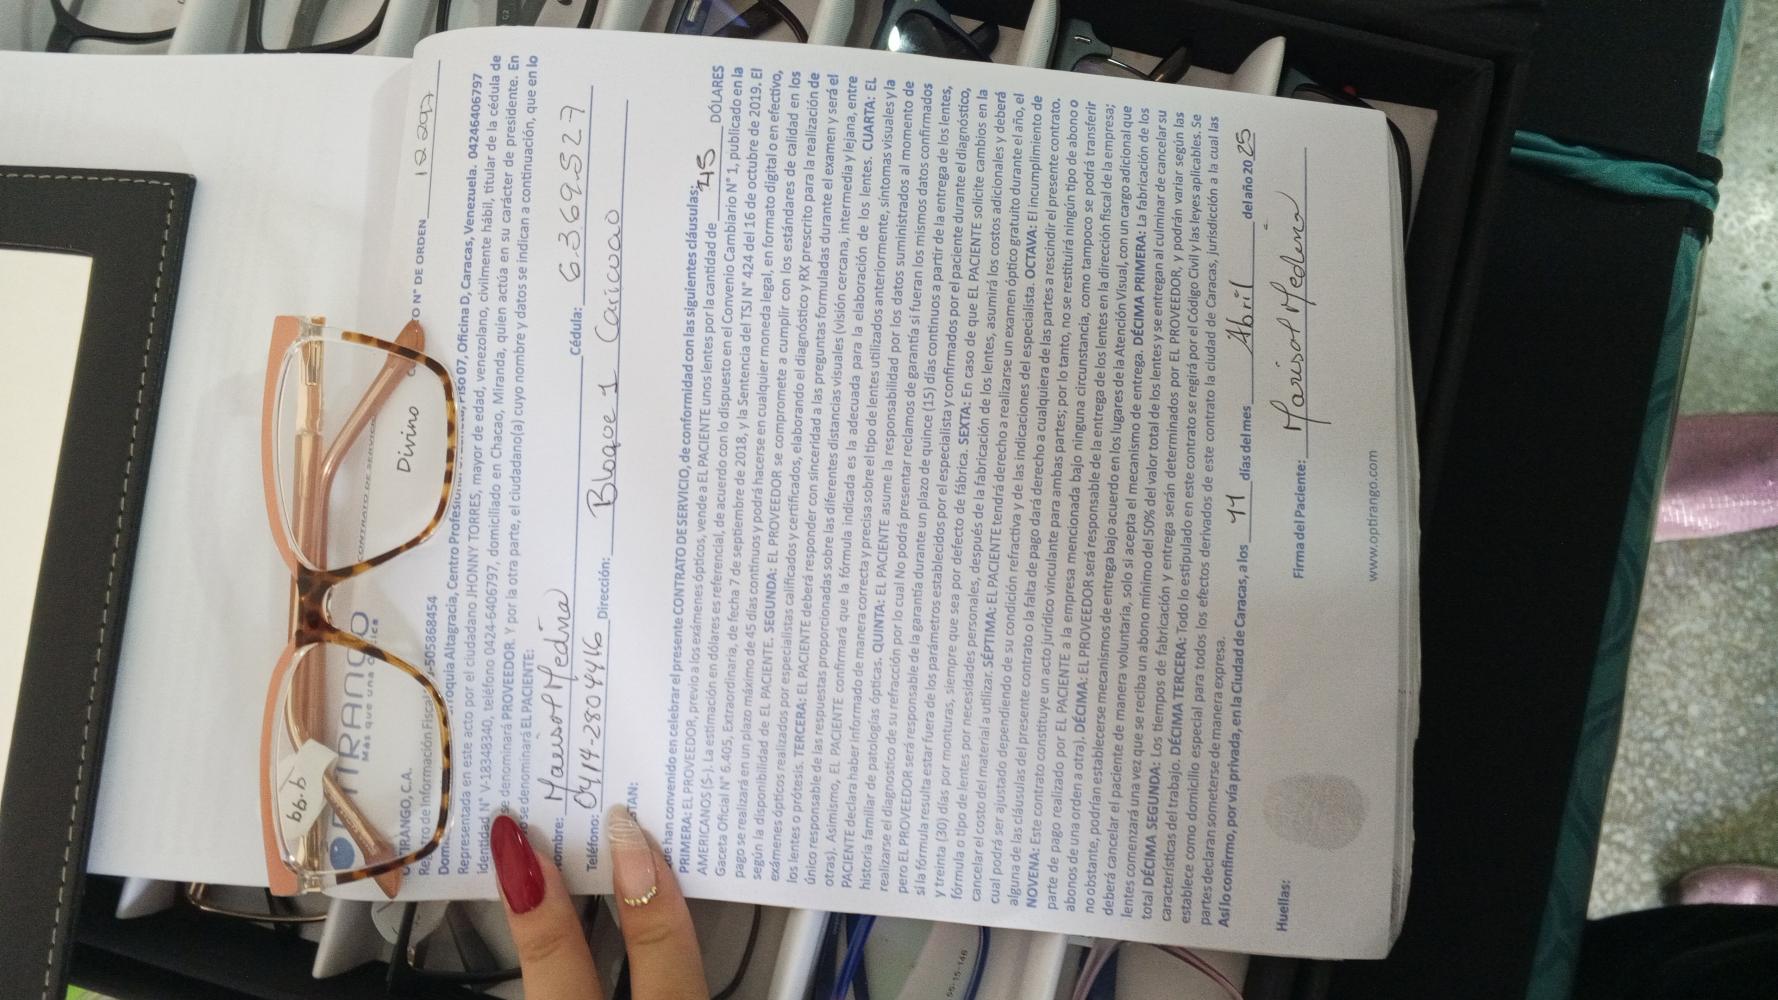 66.6
OPTIRANGO
Más que una óptica
CONTRATO DE SERVICIO
Divino
O N° DE ORDEN 12297
OPTIRANGO, C.A.
Registro de Información Fiscal J-505868454
Parroquia Altagracia, Centro Profesional Piso 07, Oficina D, Caracas, Venezuela. 04246406797
Representada en este acto por el ciudadano JHONNY TORRES, mayor de edad, venezolano, civilmente hábil, titular de la cédula de
Identidad N° V-18348340, teléfono 0424-6406797, domiciliado en Chacao, Miranda, quien actúa en su carácter de presidente. En
se denominará PROVEEDOR. Y por la otra parte, el ciudadano(a) cuyo nombre y datos se indican a continuación, que en lo
se denominará EL PACIENTE:
Nombre: Marisol Medina Cédula: 6.369.527
Teléfono: 0414-2804416 Dirección: Bloque 1 Caricuao
Que han convenido en celebrar el presente CONTRATO DE SERVICIO, de conformidad con las siguientes cláusulas:
PRIMERA: EL PROVEEDOR, previo a los exámenes ópticos, vende a EL PACIENTE unos lentes por la cantidad de 45 DÓLARES
AMERICANOS ($-). La estimación en dólares es referencial, de acuerdo con lo dispuesto en el Convenio Cambiario N° 1, publicado en la
Gaceta Oficial N° 6.405, Extraordinaria, de fecha 7 de septiembre de 2018, y la Sentencia del TSJ N° 424 del 16 de octubre de 2019. El
pago se realizará en un plazo máximo de 45 días continuos y podrá hacerse en cualquier moneda legal, en formato digital o en efectivo,
según la disponibilidad de EL PACIENTE. SEGUNDA: EL PROVEEDOR se compromete a cumplir con los estándares de calidad en los
exámenes ópticos realizados por especialistas calificados y certificados, elaborando el diagnóstico y RX prescrito para la realización de
los lentes o prótesis. TERCERA: EL PACIENTE deberá responder con sinceridad a las preguntas formuladas durante el examen y será el
único responsable de las respuestas proporcionadas sobre las diferentes distancias visuales (visión cercana, intermedia y lejana, entre
otras). Asimismo, EL PACIENTE confirmará que la fórmula indicada es la adecuada para la elaboración de los lentes. CUARTA: EL
PACIENTE declara haber informado de manera correcta y precisa sobre el tipo de lentes utilizados anteriormente, síntomas visuales y la
historia familiar de patologías ópticas. QUINTA: EL PACIENTE asume la responsabilidad por los datos suministrados al momento de
realizarse el diagnostico de su refracción por lo cual No podrá presentar reclamos de garantía si fueran los mismos datos confirmados
pero EL PROVEEDOR será responsable de la garantía durante un plazo de quince (15) días continuos a partir de la entrega de los lentes,
si la fórmula resulta estar fuera de los parámetros establecidos por el especialista y confirmados por el paciente durante el diagnóstico,
y treinta (30) días por monturas, siempre que sea por defecto de fábrica. SEXTA: En caso de que EL PACIENTE solicite cambios en la
fórmula o tipo de lentes por necesidades personales, después de la fabricación de los lentes, asumirá los costos adicionales y deberá
cancelar el costo del material a utilizar. SÉPTIMA: EL PACIENTE tendrá derecho a realizarse un examen óptico gratuito durante el año, el
cual podrá ser ajustado dependiendo de su condición refractiva y de las indicaciones del especialista. OCTAVA: El incumplimiento de
alguna de las cláusulas del presente contrato o la falta de pago dará derecho a cualquiera de las partes a rescindir el presente contrato.
NOVENA: Este contrato constituye un acto jurídico vinculante para ambas partes; por lo tanto, no se restituirá ningún tipo de abono o
parte de pago realizado por EL PACIENTE a la empresa mencionada bajo ninguna circunstancia, como tampoco se podrá transferir
abonos de una orden a otra). DÉCIMA: EL PROVEEDOR será responsable de la entrega de los lentes en la dirección fiscal de la empresa;
no obstante, podrían establecerse mecanismos de entrega bajo acuerdo en los lugares de la Atención Visual, con un cargo adicional que
deberá cancelar el paciente de manera voluntaria, solo si acepta el mecanismo de entrega. DÉCIMA PRIMERA: La fabricación de los
lentes comenzará una vez que se reciba un abono mínimo del 50% del valor total de los lentes y se entregan al culminar de cancelar su
total DÉCIMA SEGUNDA: Los tiempos de fabricación y entrega serán determinados por EL PROVEEDOR, y podrán variar según las
características del trabajo. DÉCIMA TERCERA: Todo lo estipulado en este contrato se regirá por el Código Civil y las leyes aplicables. Se
establece como domicilio especial para todos los efectos derivados de este contrato la ciudad de Caracas, jurisdicción a la cual las
partes declaran someterse de manera expresa.
Así lo confirmo, por vía privada, en la Ciudad de Caracas, a los 11 días del mes Abril del año 2025
Huellas:
Firma del Paciente: Marisol Medina
www.optirango.com
55-15-146